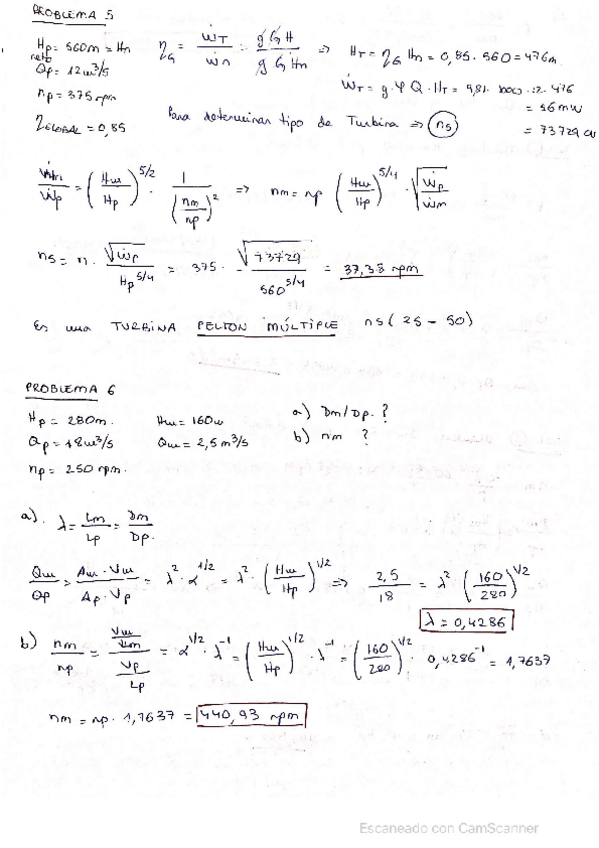 PROBLEMA 5
Hp = 560m = Hn
neto
Qp = 12 m³/s
np = 375 rpm
ηGLOBAL = 0,85
ηG = ẆT / Ẇn = g G H / g G Hn ⇒ HT = ηG Hn = 0,85 · 560 = 476m
ẆT = g·ρ Q·HT = 9,81 · 1000 · 12 · 476
= 56 MW
= 73729 CV
Para determinar tipo de Turbina ⇒ ns
Ẇm / Ẇp = (Hm / Hp)^5/2 · 1 / (nm / np)² ⇒ nm = np (Hm / Hp)^5/4 · √(Ẇp / Ẇm)
ns = n · √Ẇp / Hp^5/4 = 375 · √73729 / 560^5/4 = 37,38 rpm
Es una TURBINA PELTON MÚLTIPLE ns (25 - 50)
PROBLEMA 6
Hp = 280m. Hm = 160m a) Dm/Dp. ?
Qp = 18 m³/s Qm = 2,5 m³/s b) nm ?
np = 250 rpm.
a). λ = Lm / Lp = Dm / Dp.
Qm / Qp = Am · Vm / Ap · Vp = λ² · α^1/2 = λ² · (Hm / Hp)^1/2 ⇒ 2,5 / 18 = λ² (160 / 280)^1/2
λ = 0,4286
b) nm / np = Vm / Lm / Vp / Lp = α^1/2 · λ^-1 = (Hm / Hp)^1/2 · λ^-1 = (160 / 280)^1/2 · 0,4286^-1 = 1,7637
nm = np · 1,7637 = 440,93 rpm
Escaneado con CamScanner